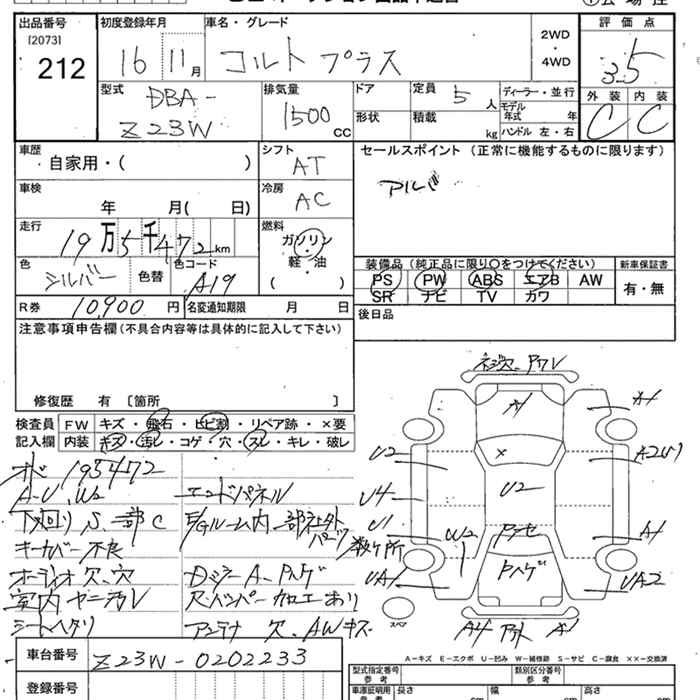 出品番号
[2073]
212
初度登録年月
16 11月
車名・グレード
コルト プラス
2WD
・
4WD
評価点
3.5
外装 内装
C C
型式
DBA-
Z23W
排気量
1500
CC
ドア
形状
定員 5人
積載 kg
ディーラー・並行
モデル年式 年
ハンドル 左・右
車歴
自家用・( )
シフト
AT
セールスポイント(正常に機能するものに限ります)
アルミ
車検
年 月( 日)
冷房
AC
走行
19万5千472km
燃料
ガソリン
・
軽・油
( )
色
シルバー
色替
色コード
A19
装備品(純正品に限り〇をつけてください)
PS PW ABS エアB AW
SR ナビ TV カワ
新車保証書
有・無
R券
10,900円
名変通知期限 月 日
後日品
注意事項申告欄(不具合内容等は具体的に記入して下さい)
修復歴 有 〔箇所 〕
検査員
記入欄
FW キズ・飛石・ヒビ割・リペア跡・×要
内装 キズ・汚レ・コゲ・穴・スレ・キレ・破レ
メ 195472
A-U、W2
下廻り S、一部C
キーカバー不良
オーディオ欠、穴
室内ヤニ汚レ
シートヘタリ
エンドパネル
E/Gルーム内一部社外パーツ
数ヶ所
Dミラー A、Pハゲ
R.バンパー加エあり
アンテナ 欠、AWキズ
ネジ欠、Pワレ
A
A1
X
U2
U2
U4
U1
UA1
W2
Pハゲ
A1
UA2
スペア
A4
A1
A-キズ E-エクボ U-凹み W-補修跡 S-サビ C-腐食 ××-交換済
車台番号
Z23W-0202233
登録番号
型式指定番号
参考
類別区分番号
参考
車庫証明用
参考
長さ cm
幅 cm
高さ cm